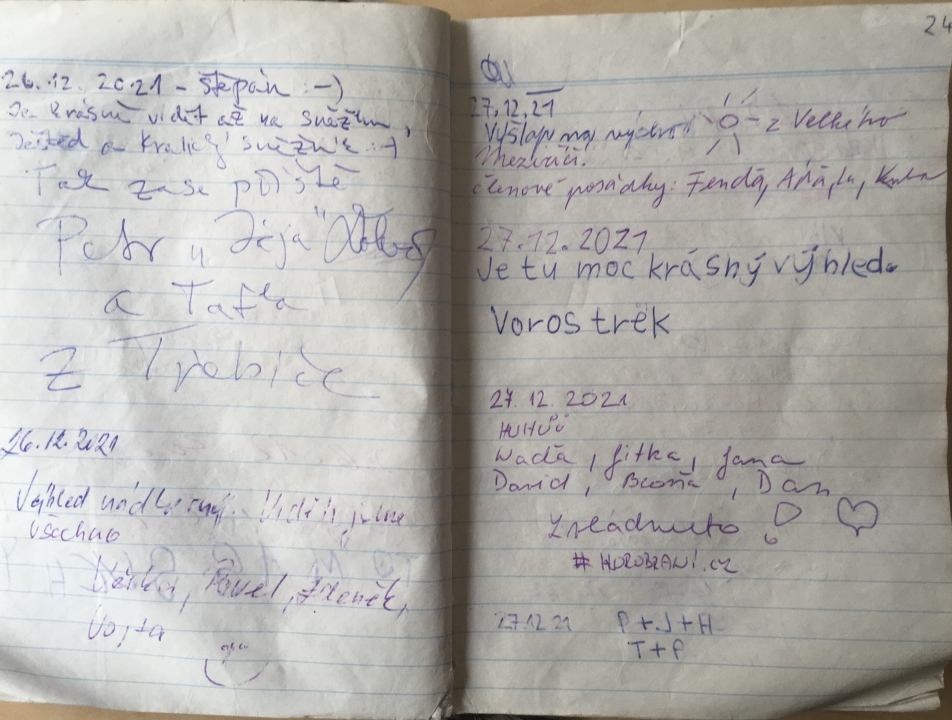 26.12. 2021 - Štěpán :-)
Je krásně vidět až na Sněžku,
Ještěd a Kralický Sněžník :-)
Tak zase příště
Petr
a
z Třebíče
26.12.2021
Výhled nádherný. Viděli jsme
všechno
Pavel, Zdeněk,
Vojta
24
27.12.21
z Velkého
Meziříčí.
členové posádky: Fenda,
27.12.2021
Je tu moc krásný výhled.
Voros trek
27.12.2021
HUHŮŮ
Wada, Jitka, Jana
David, , Dan
Zvládnuto
# HOROBRANI.cz
27.12 21 P+J+H
T+P